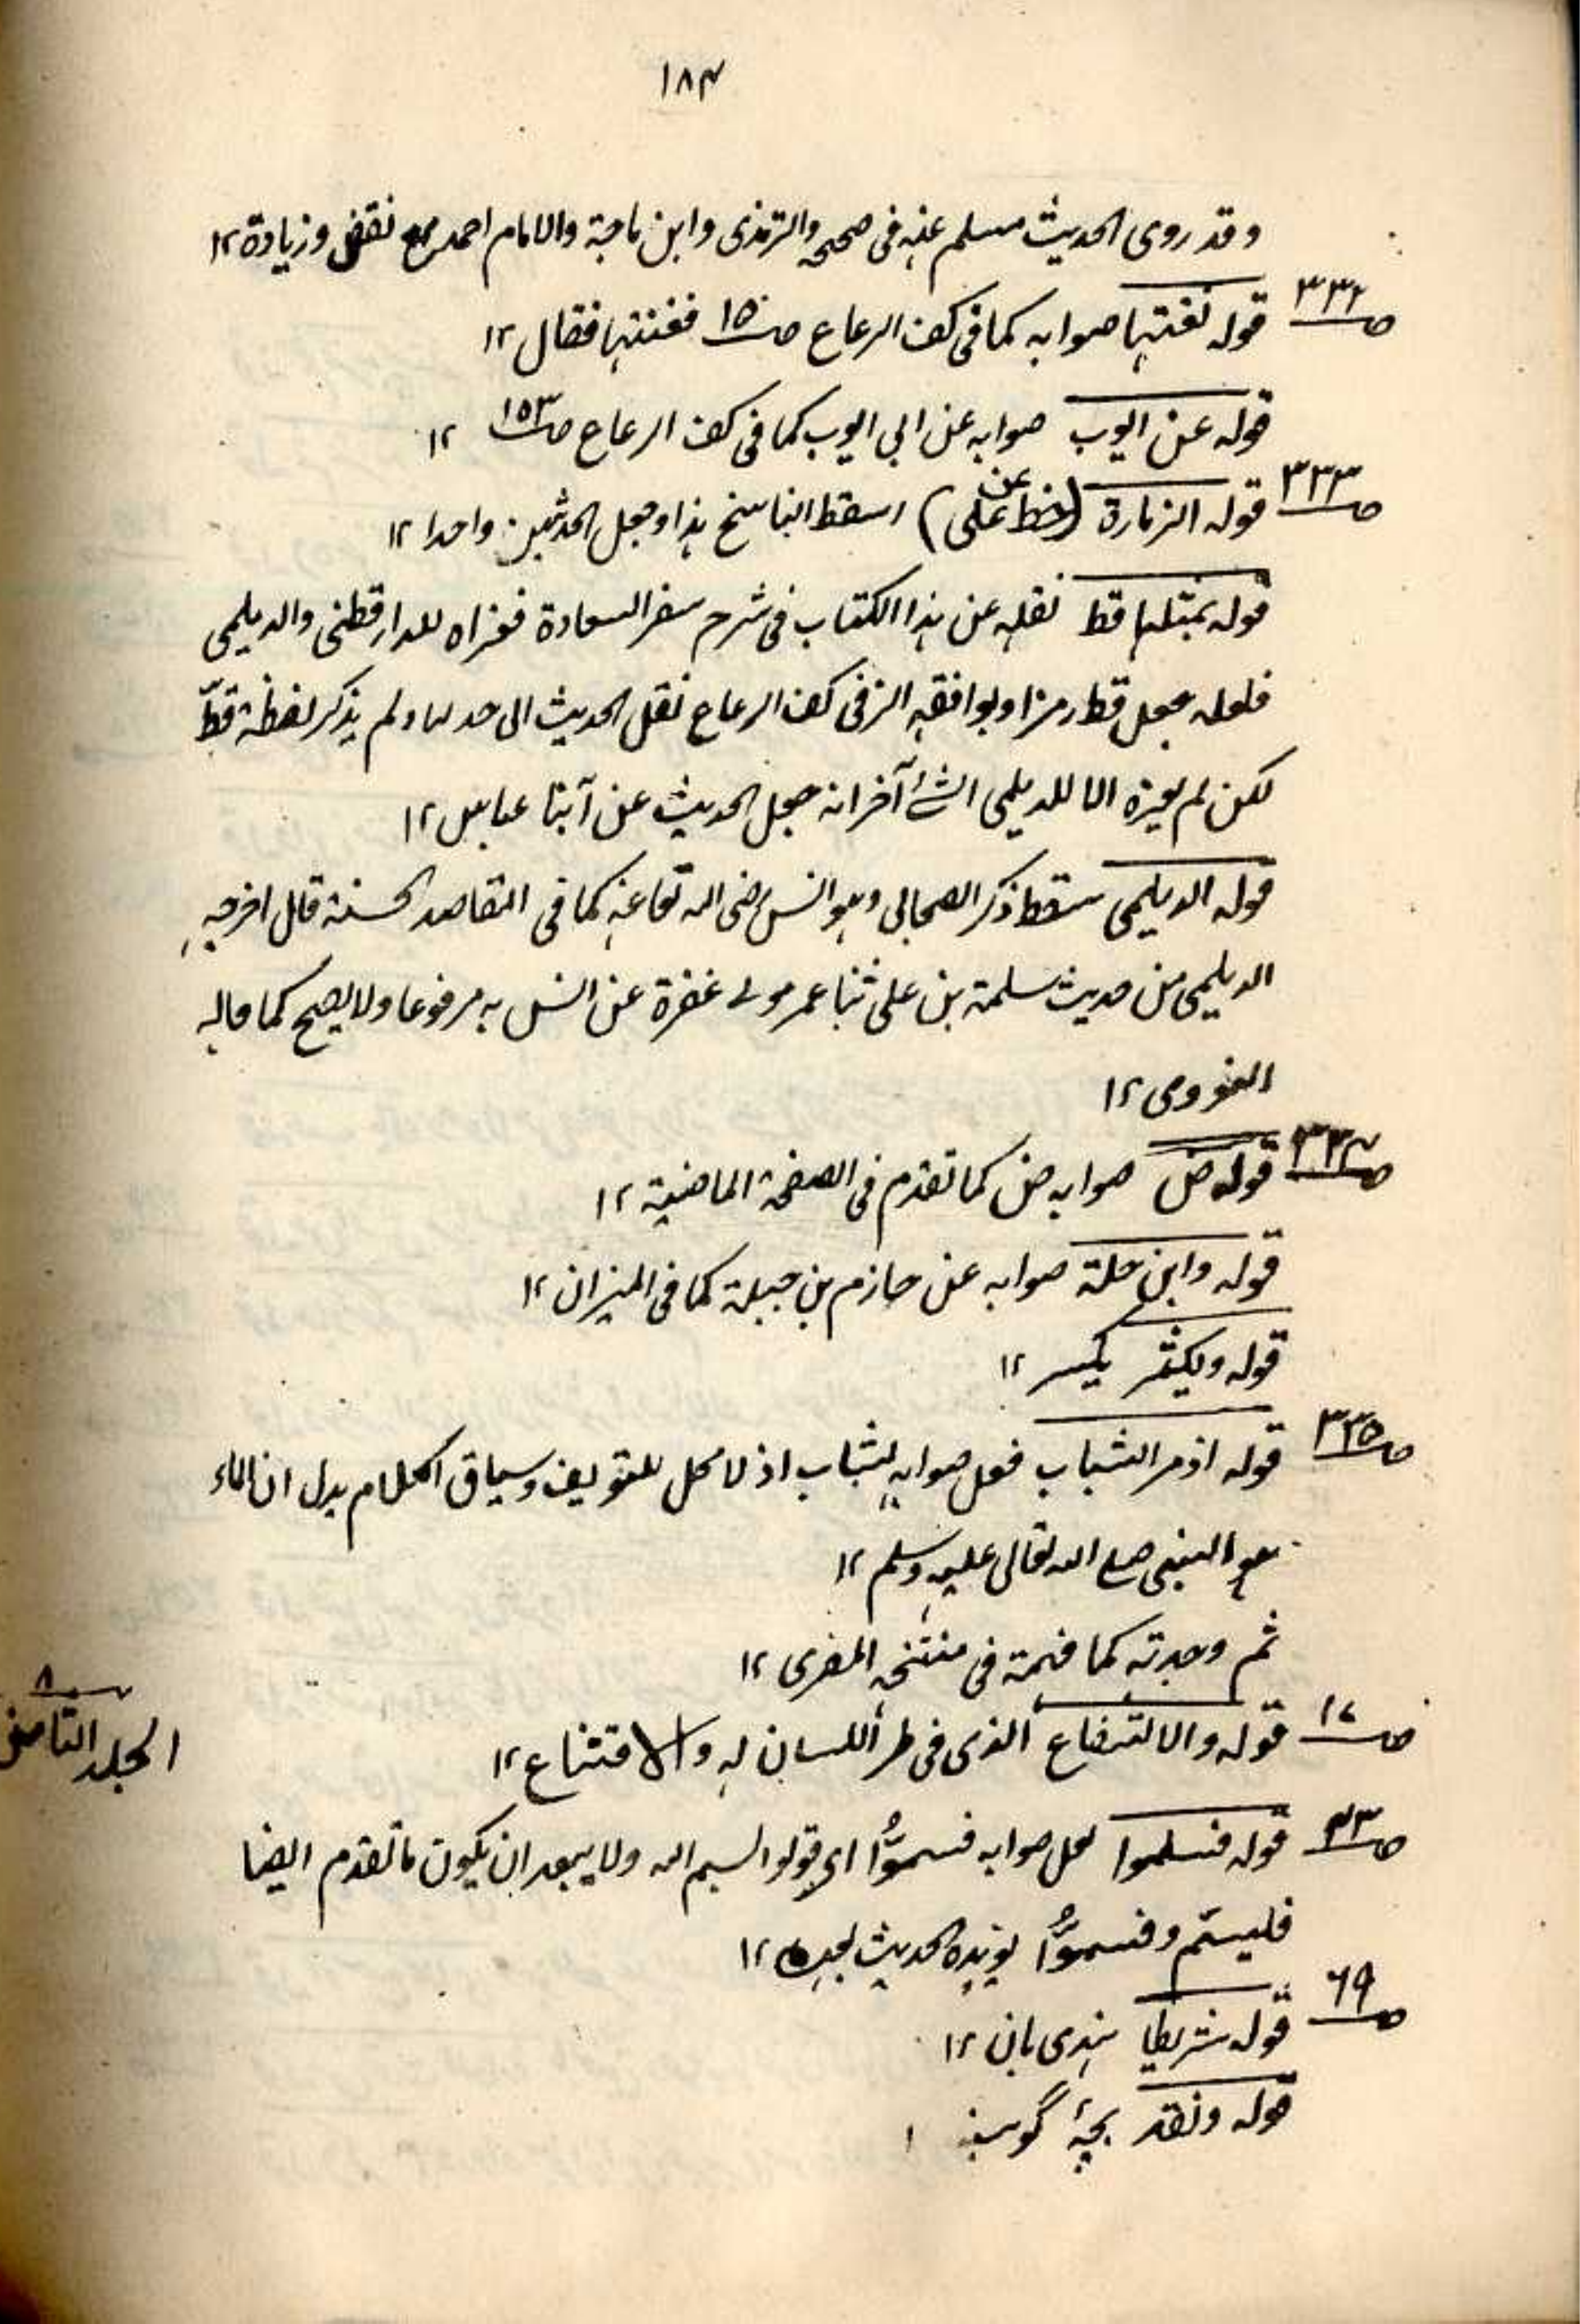 ١٨٤
وقد روى الحديث مسلم عنه فى صحيحه والترمذى وابن ماجة والامام احمد مع نقص وزيادة ١٢
صـ ٣٣٢ قوله نغنتها صوابه كما فى كف الرعاع صـ ١٥ فغنتها فقال ١٢
قوله عن ايوب صوابه عن ابى ايوب كما فى كف الرعاع صـ ١٥٣ ١٢
صـ ٣٣٣ قوله الزمارة (خط عن على) اسقط الناسخ هذا وجعل الحديثين واحدا ١٢
قوله بمثلها قط نقله عن هذا الكتاب فى شرح سفر السعادة فعزاه للدارقطنى والديلمى
فلعله جعل قط رمزا ويوافقه ان فى كف الرعاع نقل الحديث الى حد لها ولم يذكر لفظة قطّ
لكن لم يعزه الا للديلمى الشئ آخر انه جعل الحديث عن ابن عباس ١٢
قوله الديلمى سقط ذكر الصحابى وهو انس رضى الله تعا عنه كما فى المقاصد الحسنة قال اخرجه
الديلمى من حديث سلمة بن على ثنا عمر مولى غفرة عن انس به مرفوعا ولا يصح كما قاله
النووى ١٢
صـ ٣٣٤ قوله ض صوابه ض كما تقدم فى الصفحة الماضية ١٢
قوله وابن حلة صوابه عن حازم بن جبلة كما فى الميزان ١٢
قوله ويكثر يكسر ١٢
صـ ٣٣٥ قوله اذمر الشباب فعل صوابه لشاب اذ لا محل للتعريف وسياق الكلام يدل ان الماء
هو النبى صلى الله تعالى عليه وسلم ١٢
ثم وجدته كما فهمة فى منتخبه المصرى ١٢
سـ ٨
الجلد الثامن
صـ ١٧ قوله والا الذى فى طرأ اللسان له والاقتناع ١٢
صـ ٤٣ قوله فسلموا لعل صوابه فسموُّا اى قولوا بسم الله ولا يبعد ان يكون ما تقدم ايضا
فليسّم وفسموُّا يؤيده الحديث بعيده ١٢
صـ ٦٩ قوله شريطا هندى بان ١٢
قوله ونقد بچۂ گوسپند